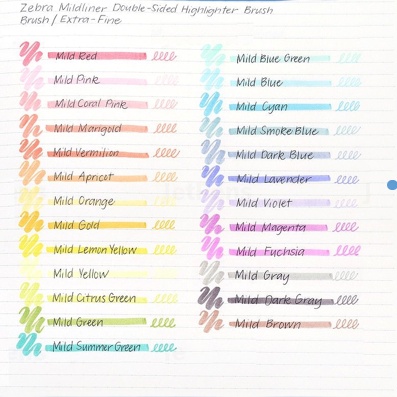 Zebra Mildliner Double-Sided Highlighter Brush
Brush / Extra-Fine
Mild Red
Mild Pink
Mild Coral Pink
Mild Marigold
Mild Vermilion
Mild Apricot
Mild Orange
Mild Gold
Mild Lemon Yellow
Mild Yellow
Mild Citrus Green
Mild Green
Mild Summer Green
Mild Blue Green
Mild Blue
Mild Cyan
Mild Smoke Blue
Mild Dark Blue
Mild Lavender
Mild Violet
Mild Magenta
Mild Fuchsia
Mild Gray
Mild Dark Gray
Mild Brown